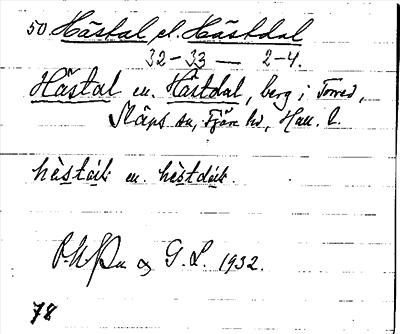 50. Hästal el. Hästdal
32-33 — 2-4.
Hästal en. Hästdal, berg i Torred,
Släps sn, Fjäre hd, Hall. l.
hèstál en. hèstdál.
& G. L. 1932.
78